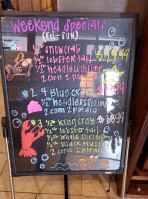 WEEKEND SPECIALS
(FRI - SUN)
½ SNOWCRAB
½ lobster tail
½ HEADless SHRIMP
2 CORN 2 POTATO
#2 4 BLUE CRAB
½ HEADless SHRIMP
2 CORN 2 POTATO
#3 ½ KING CRAB
½ lobster tail
½ SHRIMP
½ BLACK MUSSEL
2 CORN 2 POTATO